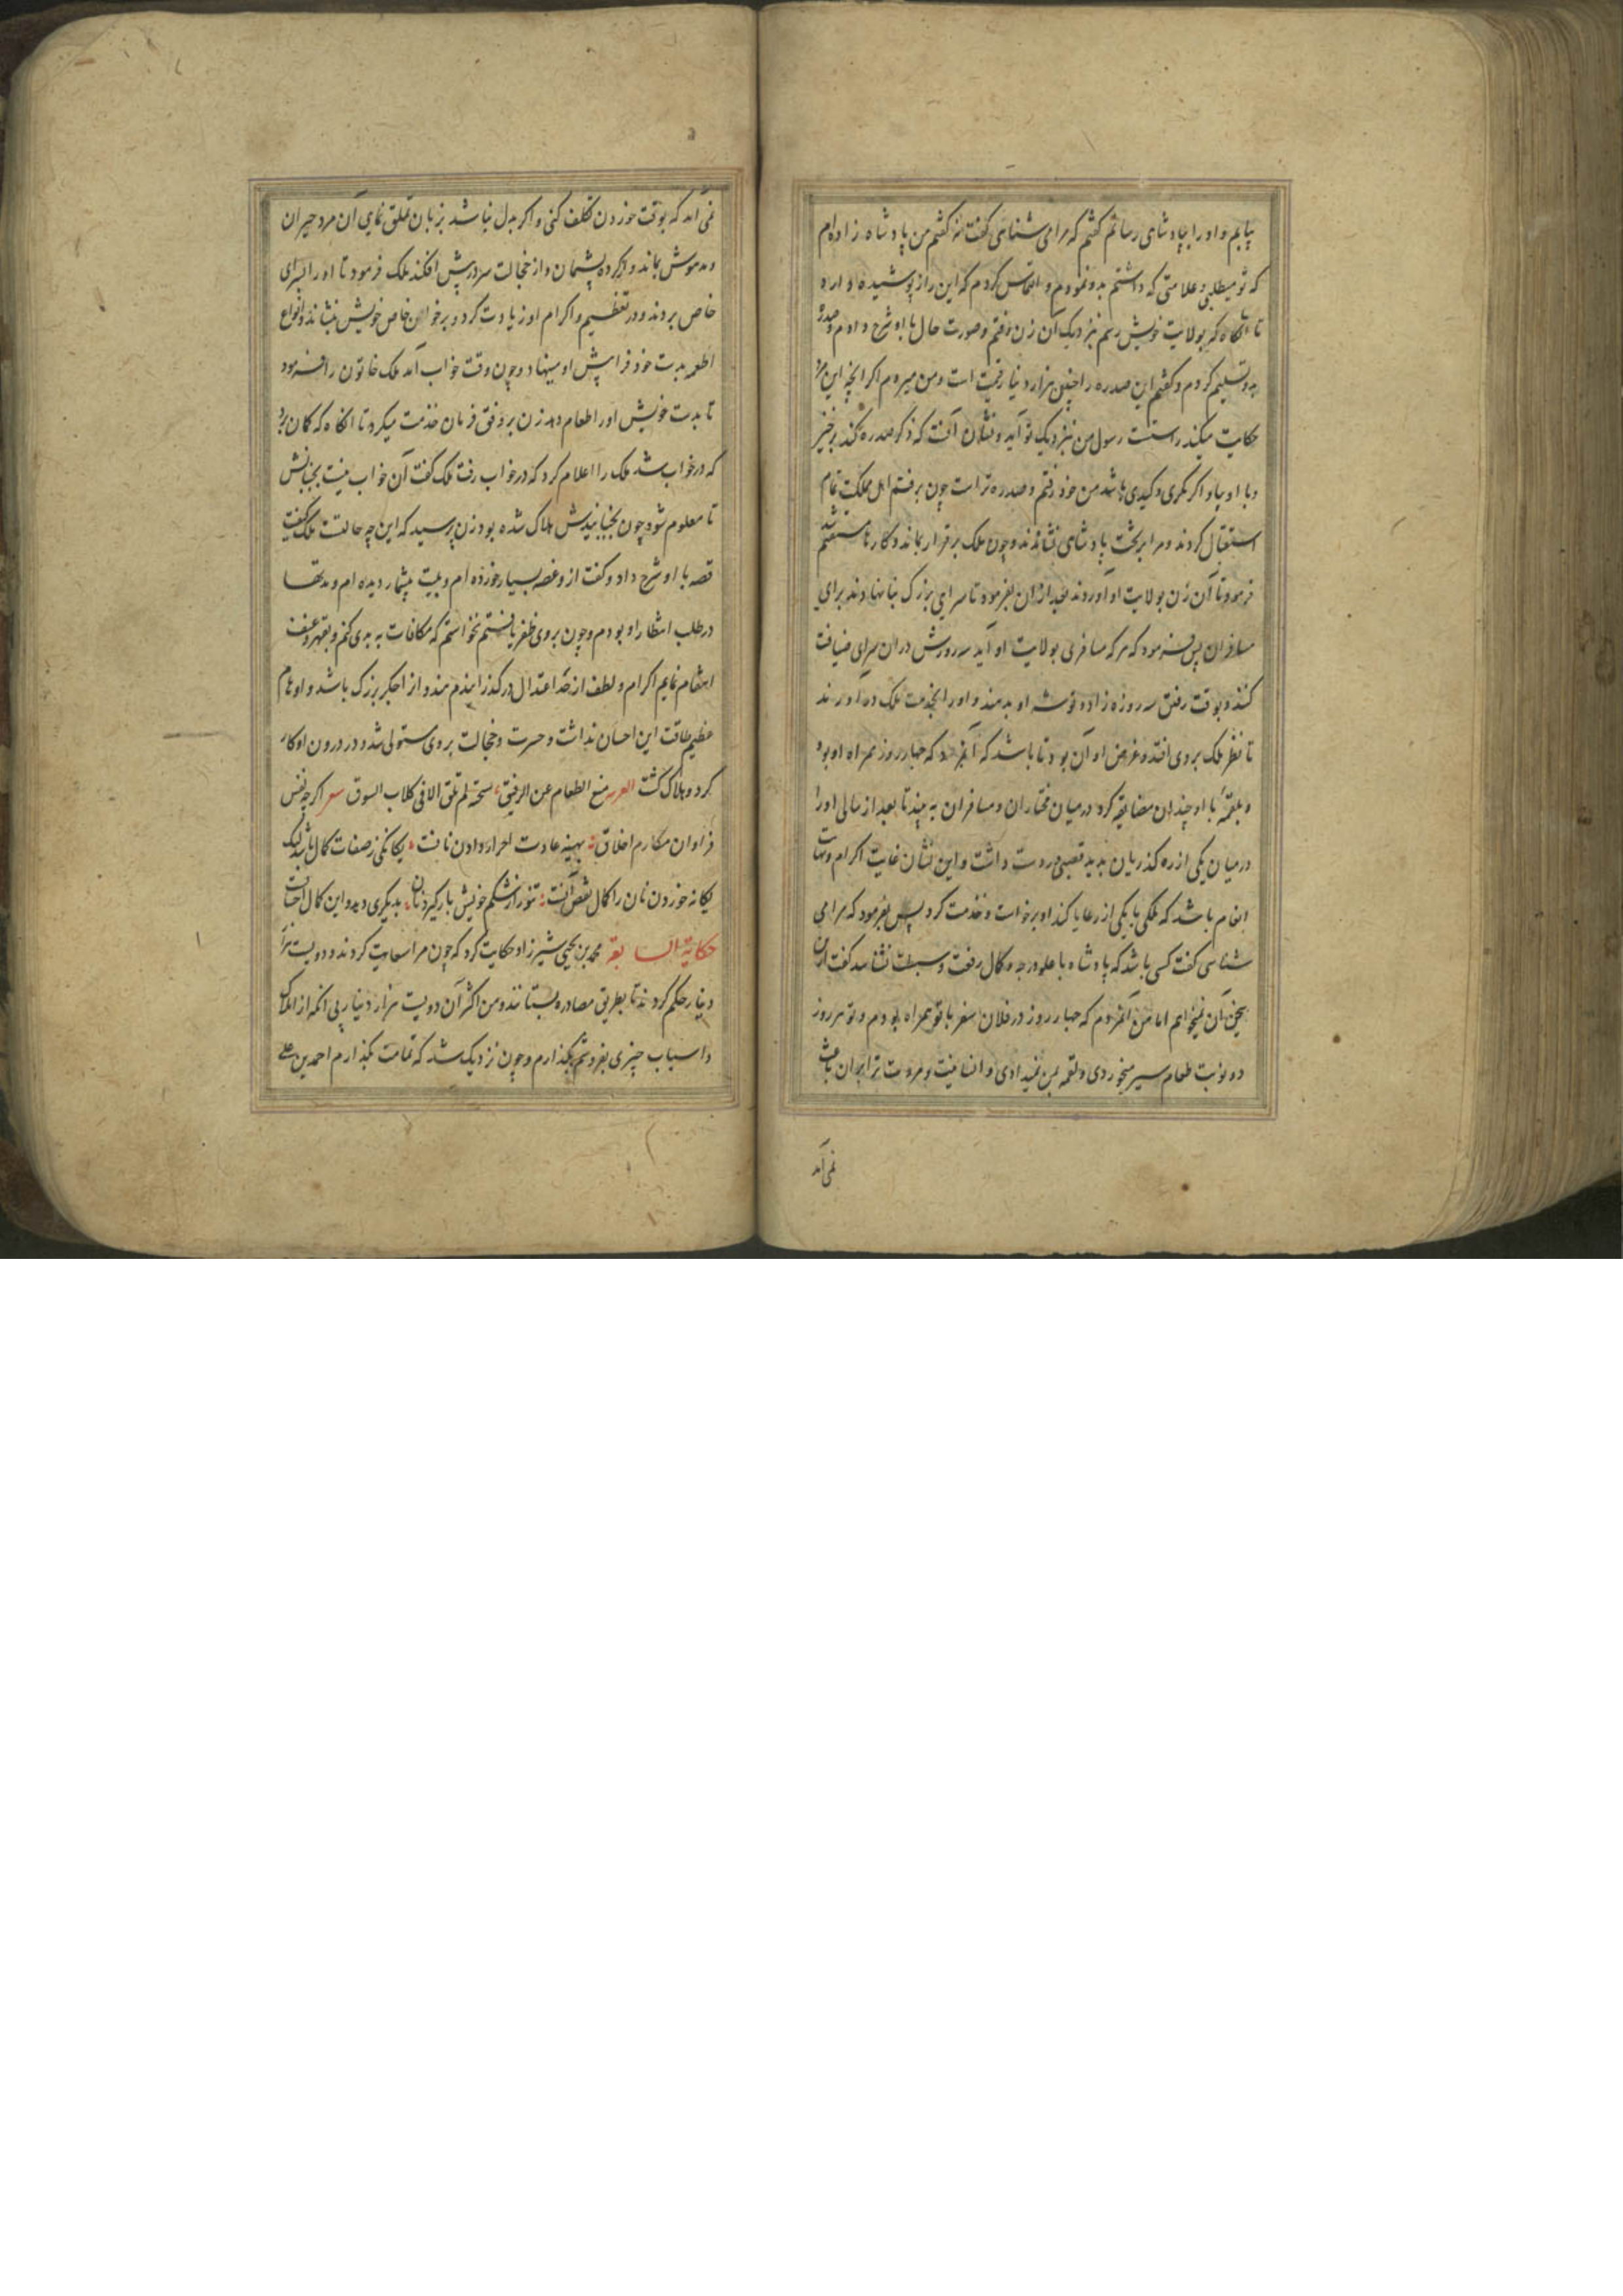 بیابم و او را بپادشاهی رسانم گفتم که مرا می شناسی گفت نه گفتم من پادشاه زاده ام
که تو میطلبی و علامتی که داشتم بدو نمودم و التماس کردم که این راز پوشیده دارد
تا آنگاه که بولایت خویش رسم نزدیک آن زن رفتم و صورت حال با او شرح دادم و صدره
بدو تسلیم کردم و گفتم این صدره را چندین هزار دینار قیمت است و من میروم اگر آنچه این مرد
حکایت میکند راستست رسول من نزدیک تو آید و نشان آنست که ذکر صدره کند برخیز
و با او بیا و اگر مکری و کیدی باشد من خود رفتم و صدره تراست چون برفتم اهل مملکت تمام
استقبال کردند و مرا بر تخت پادشاهی نشاندند و چون ملک برقرار بماند و کارها مستقیم شد
فرمود تا آن زن بولایت او آوردند بعد ازان بفرمود تا سرای بزرک بنا نهادند برای
مسافران پس فرمود که هر که مسافری بولایت او آید سه روزش در ان سرای ضیافت
کنند و بوقت رفتن سه روزه زاد و توشه او بدهند و او را بخدمت ملک در آورند
تا نظر ملک بر وی افتد و غرض او آن بود تا باشد که آنمرد که چهار روز همراه او بود
و بلقمه با او چندان مضایقه کرد در میان مختاران و مسافران به بیند تا بعد از سالی او را
در میان یکی از ره کذریان بدید قصبی در دست داشت و این نشان غایت اکرام و نهایت
انعام باشد که ملکی با یکی از رعایا کند او برخاست و خدمت کرد پس بفرمود که مرا می
شناسی گفت کسی باشد که پادشاه با علو درجه و کمال رفعت و نشناسد گفت ازین
سخن آن نمیخواهم اما من آنمردم که چهار روز در فلان سفر با تو همراه بودم و تو هر روز
دو نوبت طعام سیر میخوردی و لقمه بمن نمیدادی و انسانیت و مروت ترا بران باعث
نمی آمد
نمی آمد که بوقت خوردن تکلف کنی و اکر بدل نباشد بزبان تملق نمایی آن مرد حیران
و مدهوش بماند و از کرده پشیمان و از خجالت سر در پیش افکند ملک فرمود تا او را بسرای
خاص بردند و در تعظیم و اکرام او زیادت کرد و بر خوان خاص خویش بنشاند و انواع
اطعمه بدست خود فرا پیش او مینهاد و چون وقت خواب آمد ملک خاتون را فرمود
تا بدست خویش او را طعام دهد زن بر وفق فرمان خدمت میکرد تا آنکاه که کمان برد
که در خواب شد ملک را اعلام کرد که در خواب رفت ملک گفت آن خواب نیست بجنبانش
تا معلوم شود چون بجنبانیدش هلاک شده بود زن پرسید که این چه حالتست ملک گفت
قصه با او شرح داد و گفت از و غصه بسیار خورده ام و بلیت بیشمار دیده ام و مدتها
در طلب انتظار او بودم و چون بر وی ظفر یافتم نخواستم که مکافات بد به بدی کنم و بقهر و عنف
انتقام نمایم اکرام و لطف از حد اعتدال در کذرانیدم و از احکر بزرک باشد و اوهام
عظیم طاقت این احسان نداشت و حسرت و خجالت بر وی مستولی شد و در درون او کار
کرد و هلاک کشت العربیه منع الطعام عن الرفیق سحة لم تلق الا فی کلاب السوق شعر اکر چه نفس
فراوان مکارم اخلاق بهینه عادت احرار دادن نانست یکانکی ز صفات کمال باشد لیک
یکانه خوردن نان را کمال نقصانست تنور از شکم خویش بار کیرد نان بدیکری دهد و این کمال احسانست
حکایة السابعة محمد بن یحیی شیرزاد حکایت کرد که چون مرا سعایت کردند و دویست هزار
دینار حکم کردند تا بطریق مصادره بستانند و من اکثر آن دویست هزار دینار بی آنکه از املاک
و اسباب چیزی بفروشم بکذارم و چون نزدیک شد که تمامت بکذارم احمد بن علی